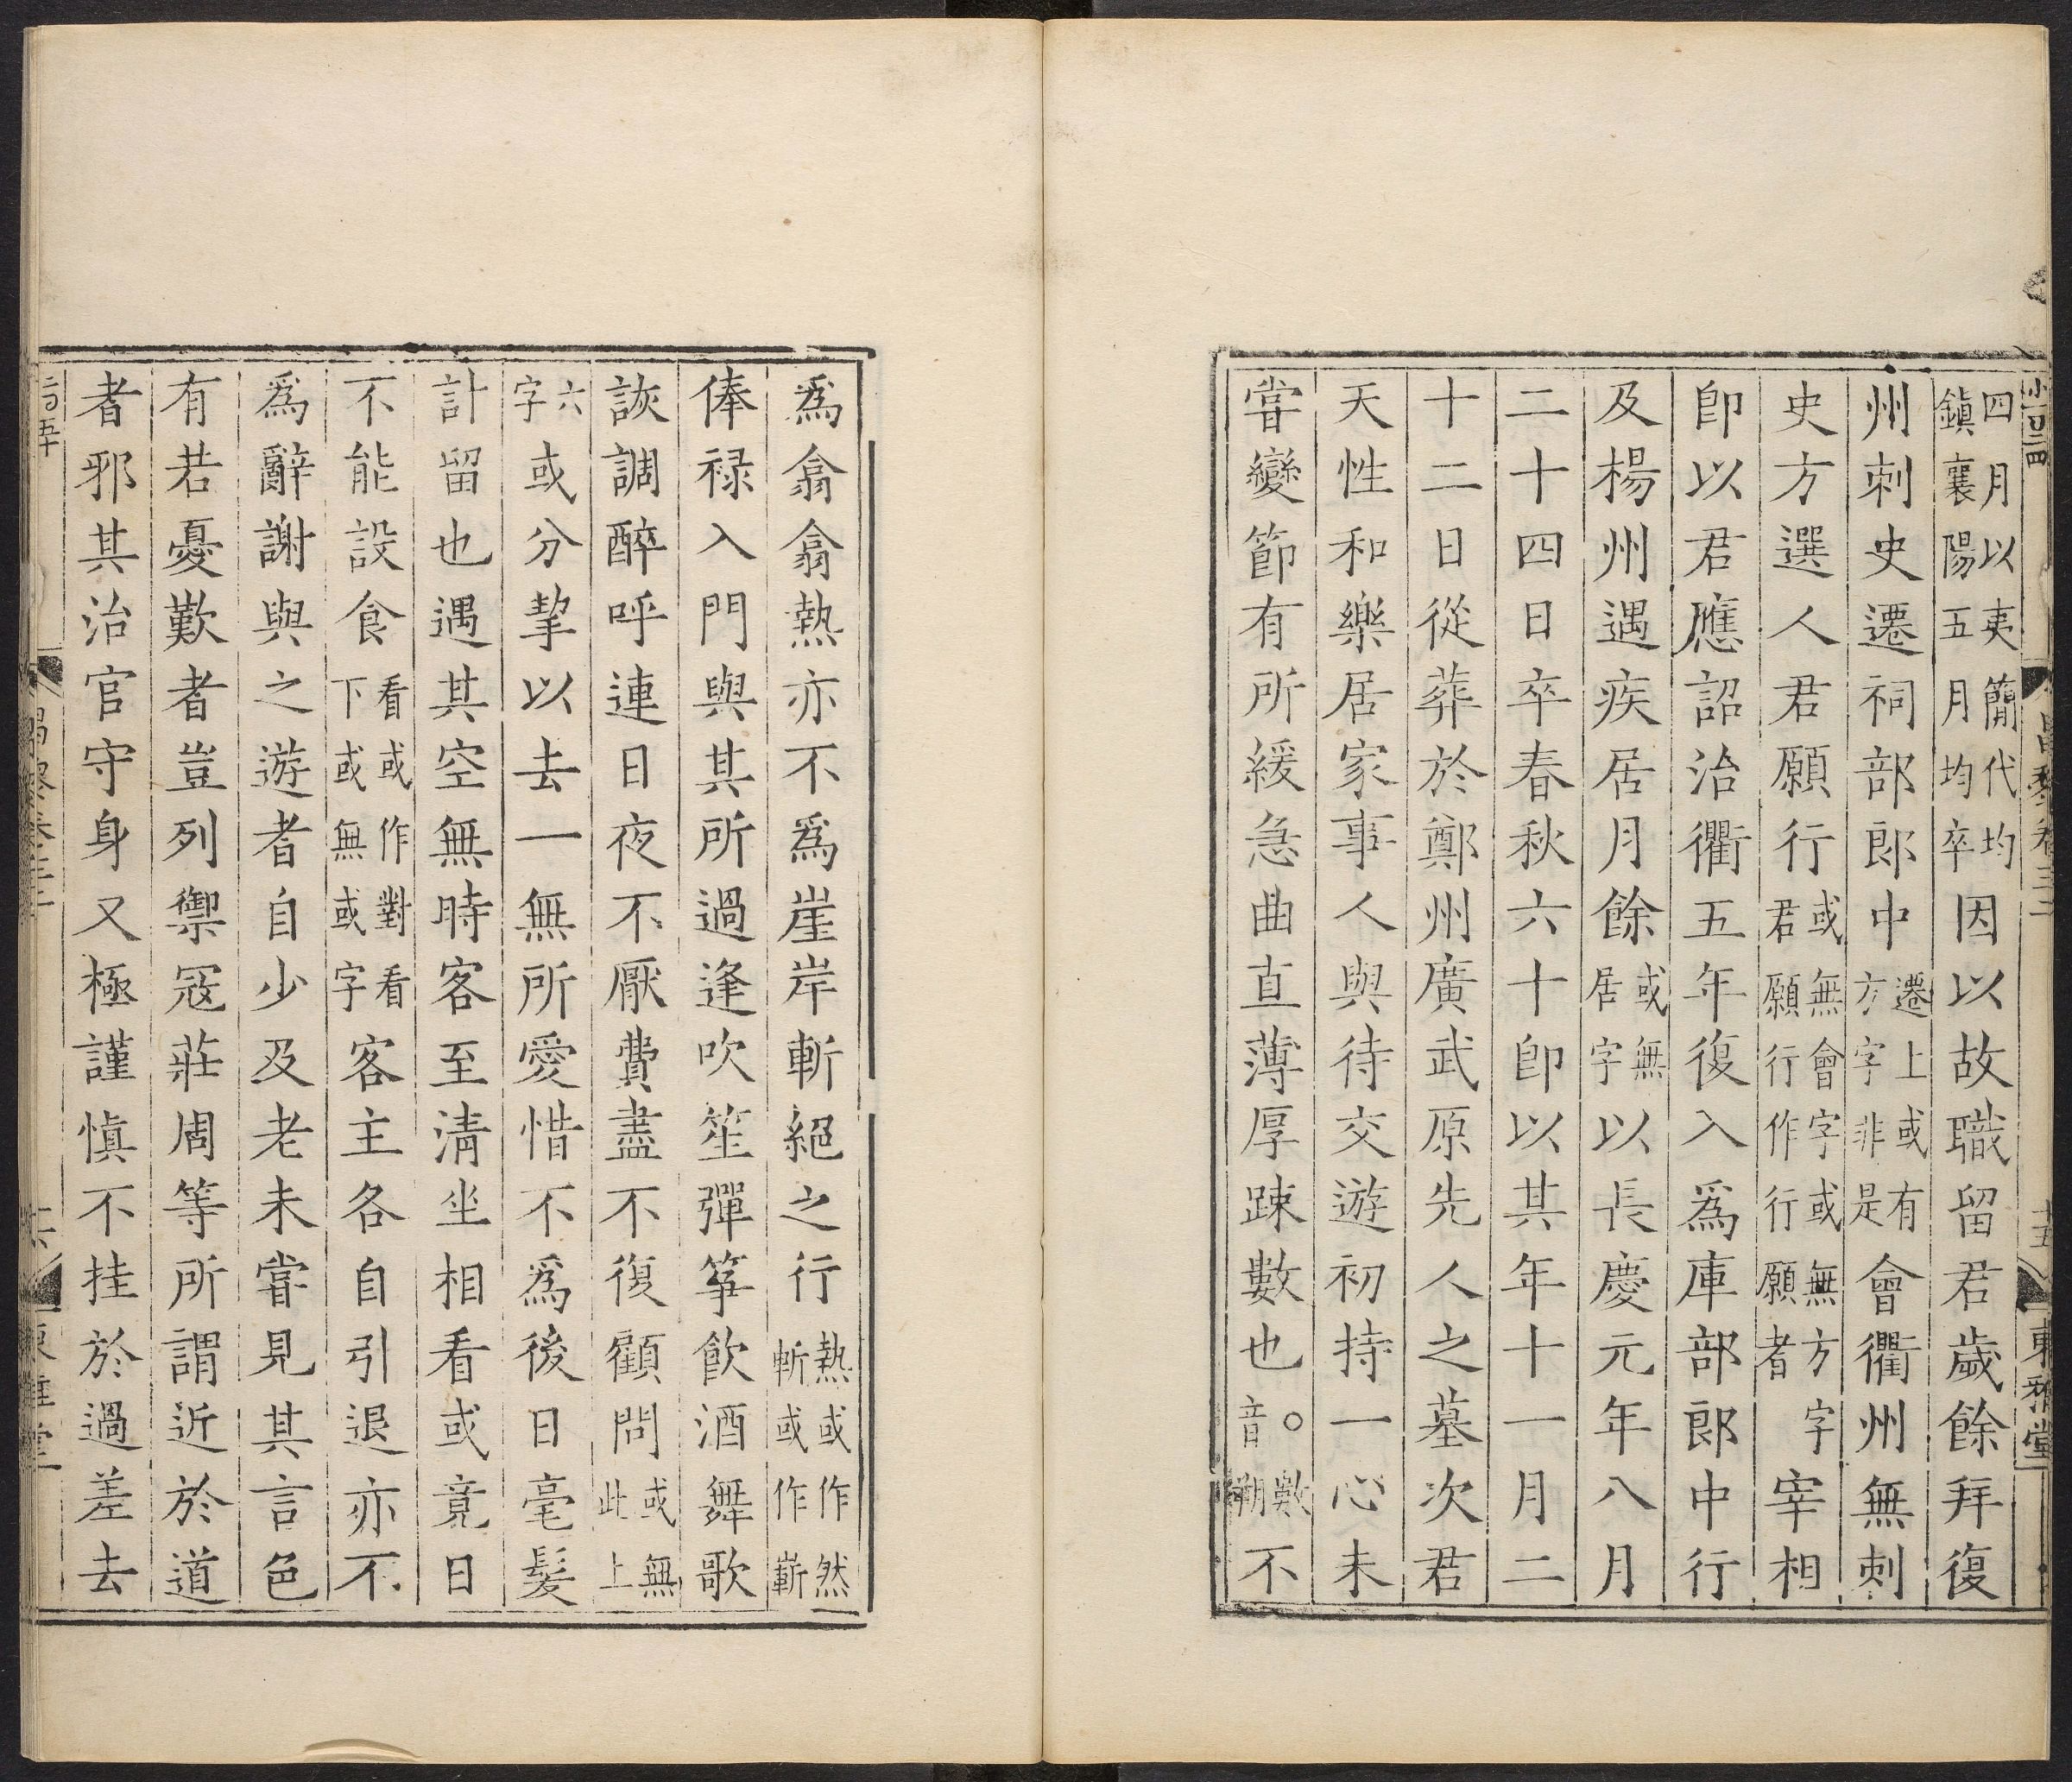 四月以夷簡代均
鎮襄陽五月均卒因以故職留君歲餘拜復
州刺史遷祠部郎中遷上或有方字非是會衢州無刺
史方選人君願行或無會字或無方字君願行作行願者宰相
卽以君應詔治衢五年復入爲庫部郎中行
及楊州遇疾居月餘或無居字以長慶元年八月
二十四日卒春秋六十卽以其年十一月二
十二日從葬於鄭州廣武原先人之墓次君
天性和樂居家事人與待交遊初持一心未
甞變節有所緩急曲直薄厚踈數也。數音朔不
爲翕翕熱亦不爲崖岸斬絕之行熱或作然斬或作嶄
俸祿入門與其所過逢吹笙彈筝飲酒舞歌
詼調醉呼連日夜不厭費盡不復顧問或無此上
六字或分挈以去一無所愛惜不爲後日毫髮
計留也遇其空無時客至清坐相看或竟日
不能設食看或作對看下或無或字客主各自引退亦不
爲辭謝與之遊者自少及老未甞見其言色
有若憂歎者豈列禦寇莊周等所謂近於道
者邪其治官守身又極謹慎不挂於過差去
小一百二四
昌黎卷三三
十五
東雅堂